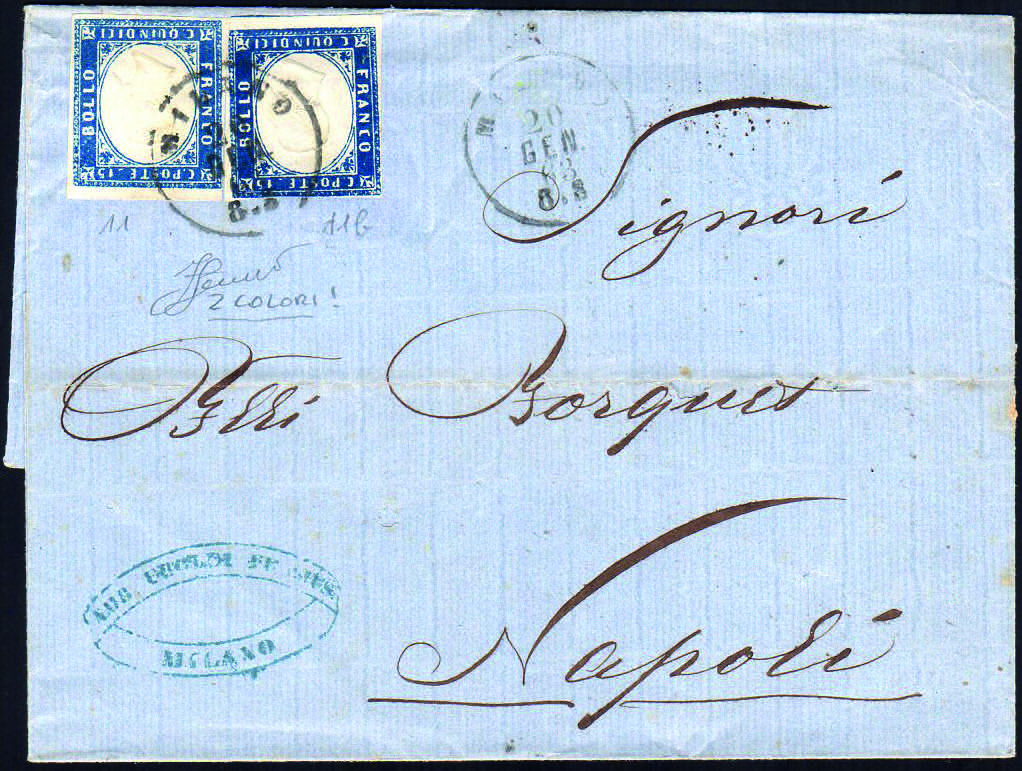 C. QUINDICI
BOLLO
FRANCO
C. POSTE. 15
C. QUINDICI
BOLLO
FRANCO
C. POSTE. 15
MILANO
GEN
8.S
20
GEN
63
8.S
11
11b
2 COLORI!
Signori
Flli Borguet
Napoli
MILANO